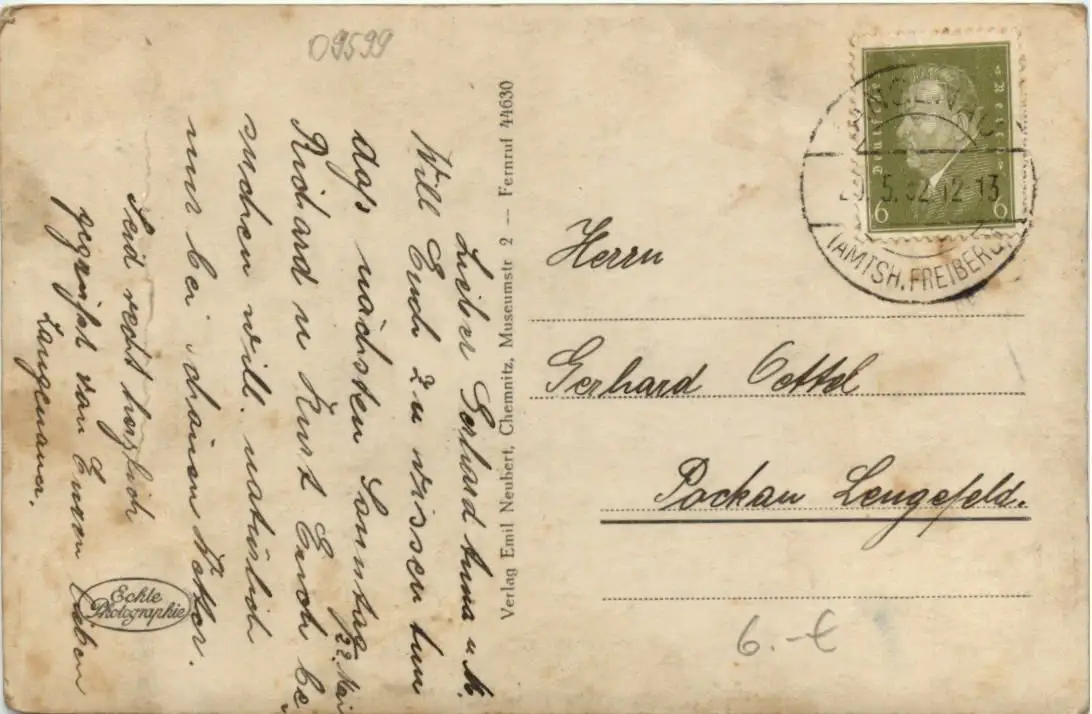 09599
Lieber Gerhard Anna u M.
Will Euch zu wissen tun
daß nächsten Sonntag
22. Mai
Richard u Kurt Euch be,
suchen will. natürlich
nur bei schönen Wetter.
Seid recht herzlich
gegrüßt von Euren Lieben
Langenauer.
Echte
Photographie
Verlag Emil Neubert, Chemnitz, Museumstr 2 — Fernruf 44630
Deutsches Reich
6 6
5. 32 12-13
(AMTSH. FREIBERG)
Herrn
Gerhard Oettel
Pockau Lengefeld.
6.-€